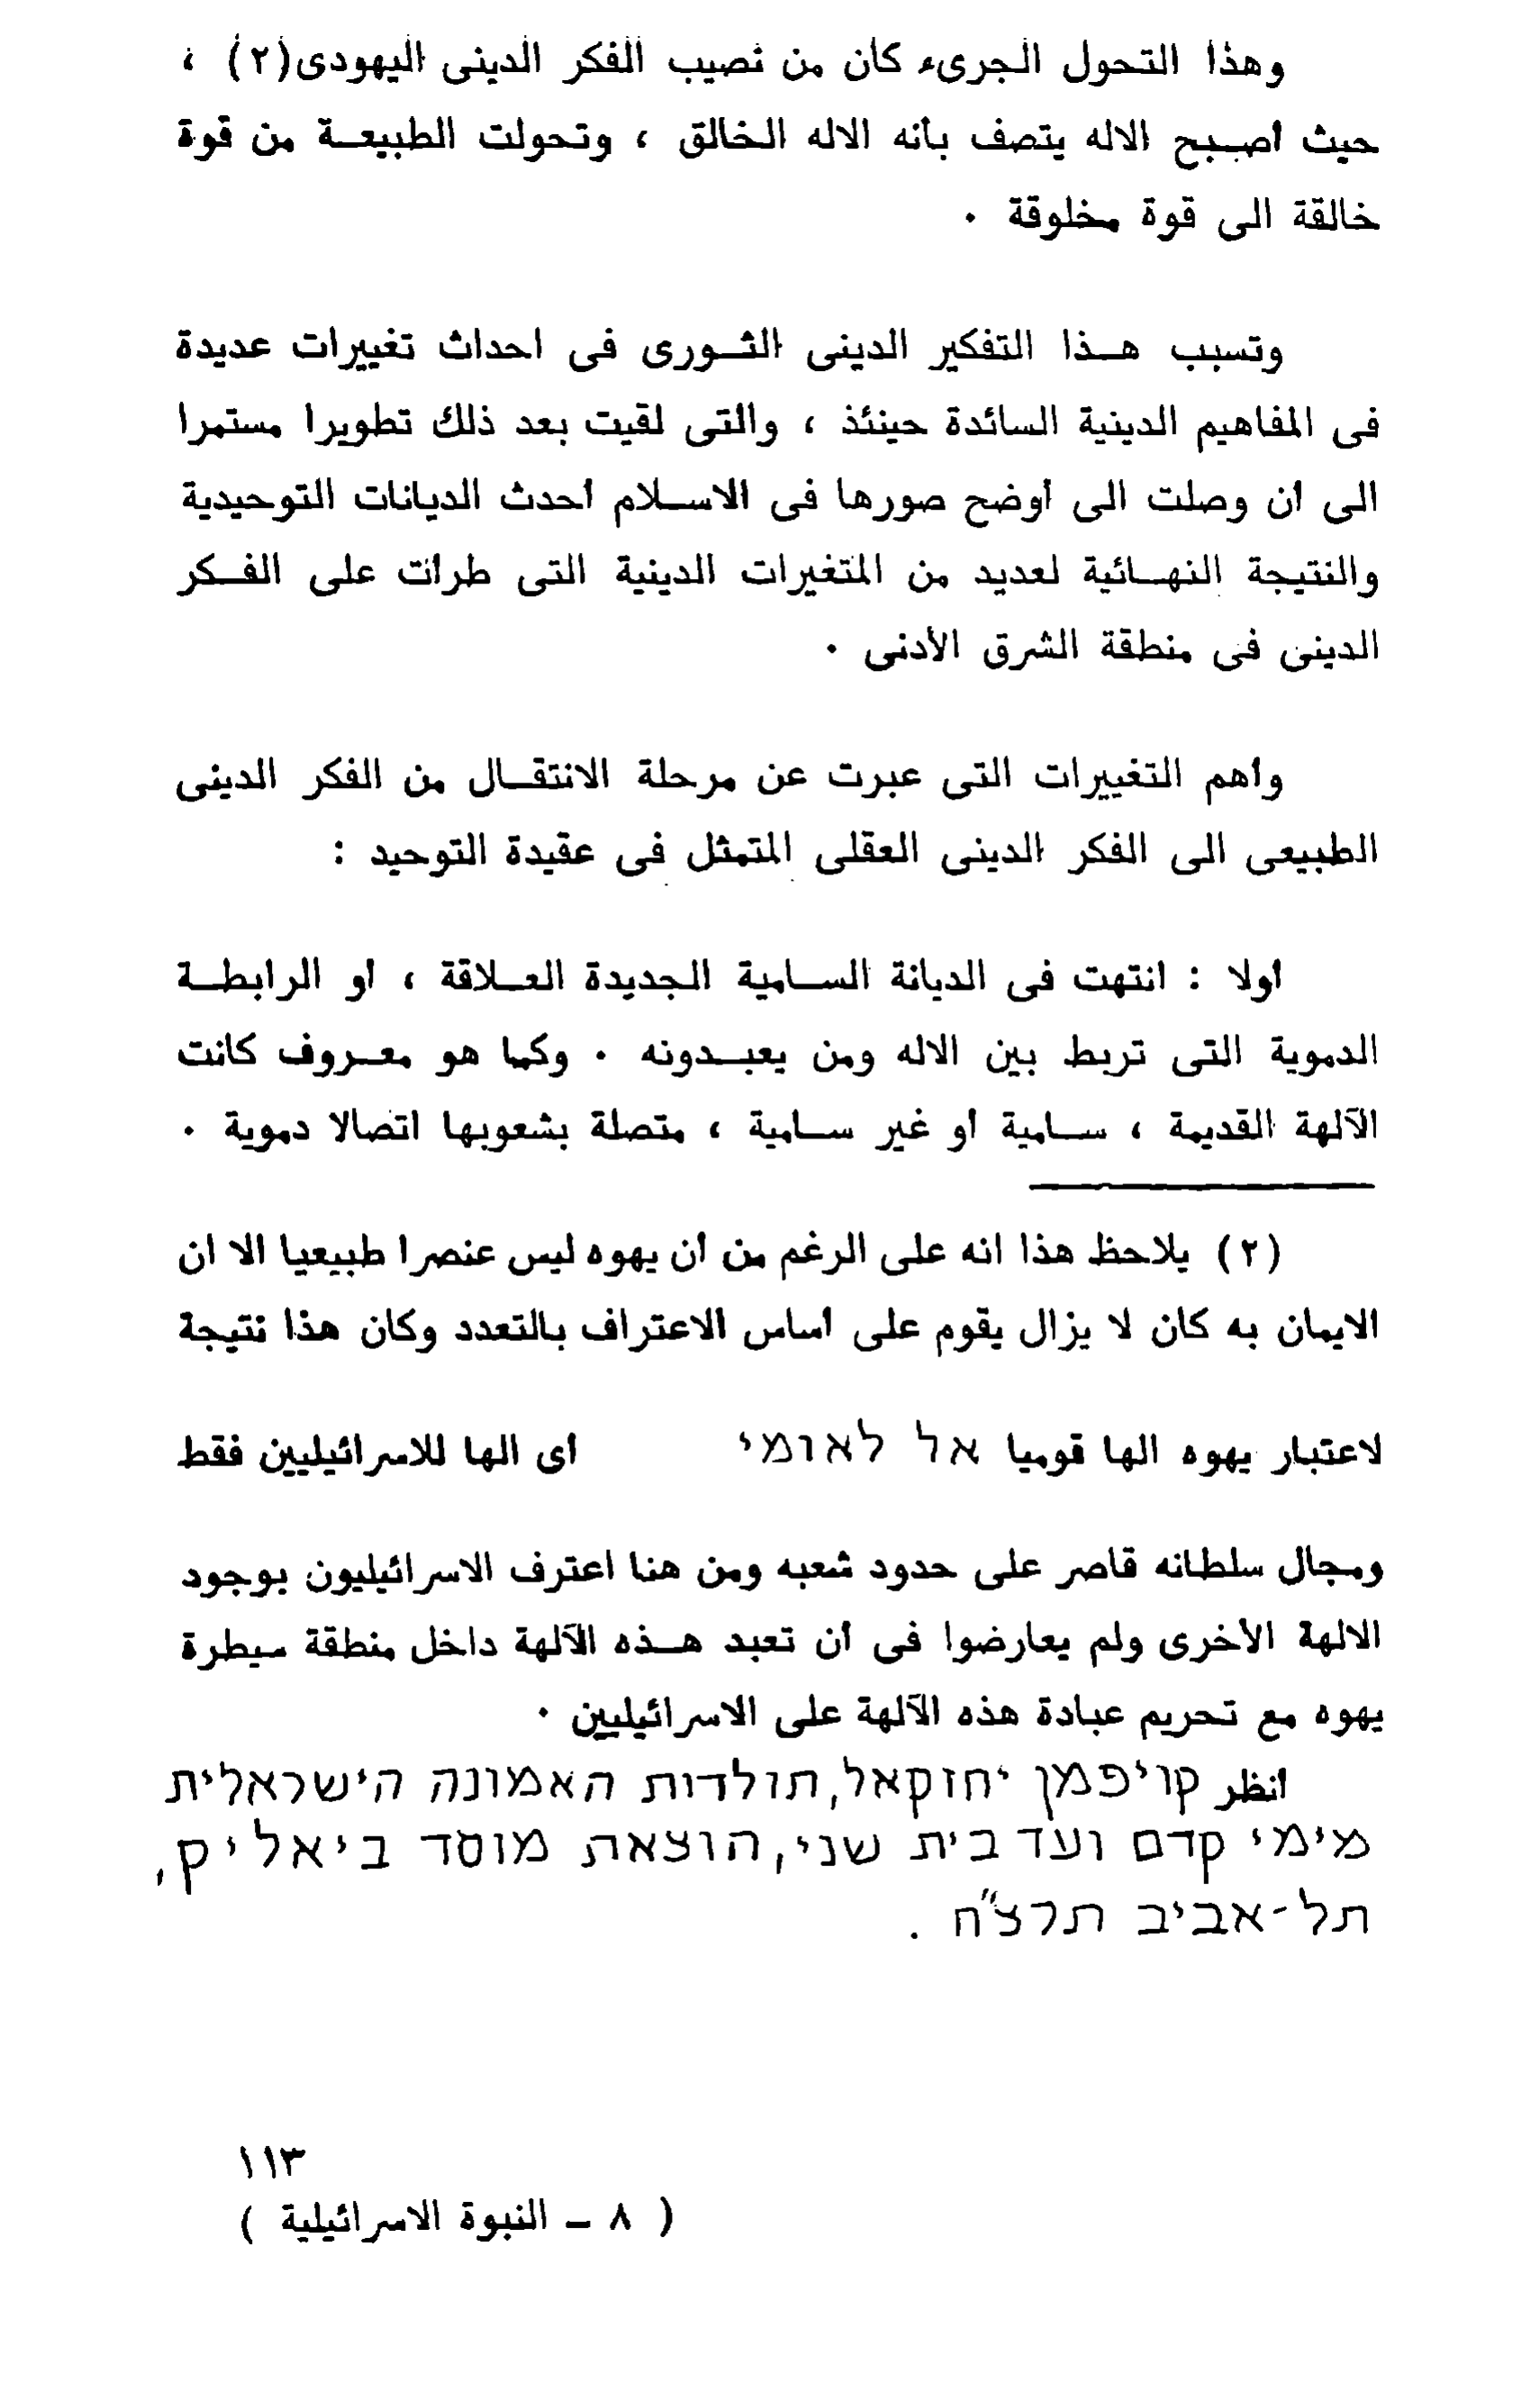 وهذا التحول الجرىء كان من نصيب الفكر الدينى اليهودى(٢) ،
حيث أصبح الاله يتصف بأنه الاله الخالق ، وتحولت الطبيعة من قوة
خالقة الى قوة مخلوقة ٠
وتسبب هذا التفكير الدينى الثورى فى احداث تغييرات عديدة
فى المفاهيم الدينية السائدة حينئذ ، والتى لقيت بعد ذلك تطويرا مستمرا
الى أن وصلت الى أوضح صورها فى الاسلام أحدث الديانات التوحيدية
والنتيجة النهائية لعديد من المتغيرات الدينية التى طرأت على الفكر
الدينى فى منطقة الشرق الأدنى ٠
وأهم التغييرات التى عبرت عن مرحلة الانتقال من الفكر الدينى
الطبيعى الى الفكر الدينى العقلى المتمثل فى عقيدة التوحيد :
أولا : انتهت فى الديانة السامية الجديدة العلاقة ، أو الرابطة
الدموية التى تربط بين الاله ومن يعبدونه ٠ وكما هو معروف كانت
الآلهة القديمة ، سامية أو غير سامية ، متصلة بشعوبها اتصالا دموية ٠
(٢) يلاحظ هذا انه على الرغم من أن يهوه ليس عنصرا طبيعيا الا ان
الايمان به كان لا يزال يقوم على أساس الاعتراف بالتعدد وكان هذا نتيجة
لاعتبار يهوه الها قوميا אל לאומי أى الها للاسرائيليين فقط
ومجال سلطانه قاصر على حدود شعبه ومن هنا اعترف الاسرائيليون بوجود
الالهة الأخرى ولم يعارضوا فى أن تعبد هذه الآلهة داخل منطقة سيطرة
يهوه مع تحريم عبادة هذه الآلهة على الاسرائيليين ٠
انظر קויפמן יחזקאל, תולדות האמונה הישראלית
מימי קדם ועד בית שני, הוצאת מוסד ביאליק,
תל-אביב תרצ"ח .
١١٣
( ٨ – النبوة الاسرائيلية )